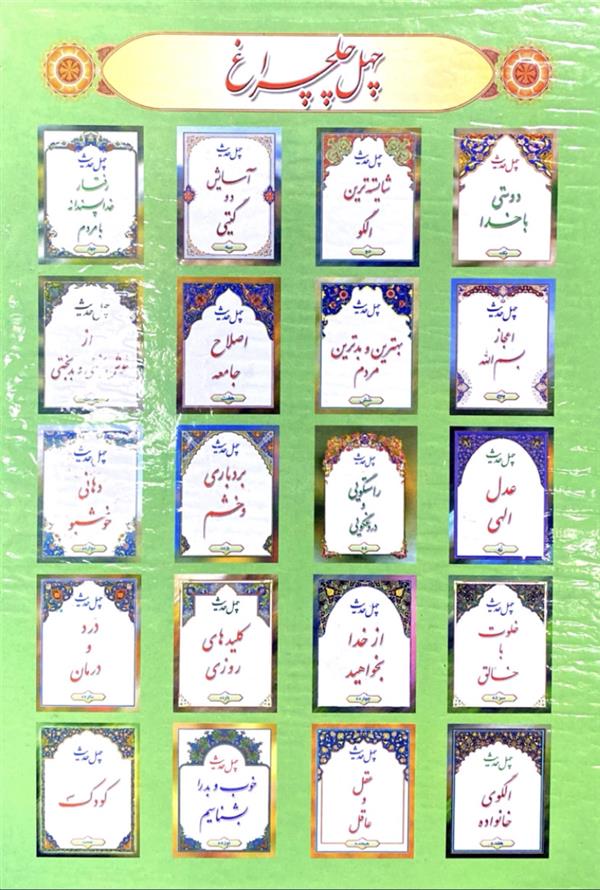 چهل چلچراغ
چهل حدیث
دوستی
با خدا
چهل حدیث
شایسته‌ترین
الگو
چهل حدیث
آسایش
دو
گیتی
چهل حدیث
رفتار
خداپسندانه
با مردم
چهل حدیث
اعجاز
بسم الله
چهل حدیث
بهترین و بدترین
مردم
چهل حدیث
اصلاح
جامعه
هفت
چهل حدیث
از
و بدبختی
چهل حدیث
عدل
الهی
نه
چهل حدیث
راستگویی
و
دروغگویی
ده
چهل حدیث
بردباری
و خشم
چهل حدیث
دهانی
خوشبو
چهل حدیث
خلوت
با
خالق
سیزده
چهل حدیث
از خدا
بخواهید
چهارده
چهل حدیث
کلیدهای
روزی
چهل حدیث
درد
و
درمان
شانزده
چهل حدیث
الگوی
خانواده
هفده
چهل حدیث
عقل
و
عاقل
چهل حدیث
خوب و بد را
بشناسیم
نوزده
چهل حدیث
کودک